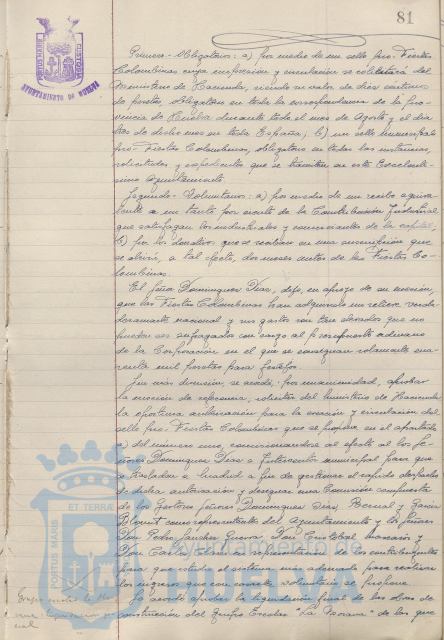 81
PORTUS MARIS ET TERRÆ CUSTODIA
AYUNTAMIENTO DE HUELVA
Primero.- Obligatorio: a) por medio de un sello pro-Fiestas
Colombinas cuya impresión y circulación se solicitará del
Ministerio de Hacienda, siendo su valor de diez céntimos
de peseta, obligatorio en toda la correspondencia de la pro-
vincia de Huelva durante todo el mes de Agosto y el día
tres de dicho mes en toda España; b) un sello municipal
pro-Fiestas Colombinas, obligatorio en todas las instancias,
solicitudes y expedientes que se tramiten en este Excelentí-
simo Ayuntamiento.
Segundo.- Voluntario: a) por medio de un recibo equiva-
lente a un tanto por ciento de la Contribución Industrial
que satisfagan los industriales y comerciantes de la capital;
b) por los donativos que se reciban en una suscripción que
se abrirá, a tal efecto, dos meses antes de las Fiestas Co-
lombinas.
El señor Domínguez Díaz, dijo, en apoyo de su moción,
que las Fiestas Colombinas han adquirido un relieve verda-
deramente nacional y sus gastos son tan elevados que no
puedan ser sufragados con cargo al presupuesto ordinario
de la Corporación en el que se consignan solamente cua-
renta mil pesetas para festejos.
Sin más discusión se acordó, por unanimidad, aprobar
la moción de referencia, solicitar del Ministerio de Hacienda
la oportuna autorización para la creación y circulación del
sello pro-Fiestas Colombinas que se propone en el apartado
a) del número uno, comisionándose al efecto al los Se-
ñores Domínguez Díaz e Interventor municipal para que
se trasladen a Madrid a fin de gestionar el rápido despacho
de dicha autorización y designar una Comisión compuesta
de los Gestores señores Domínguez Díaz, Bernal y García
como representantes del Ayuntamiento y los Señores
Don Pedro Sánchez Don Cristóbal y
Don Carlos como representantes de los contribuyentes
para que estudie el sistema más adecuado para realizar
los ingresos que con carácter voluntario se proponen.
Se acordó aprobar la liquidación final de las obras de
construcción del Grupo Escolar "La Morana" de los que
PORTUS MARIS ET TERRA
Ayuntamiento de
HUELVA